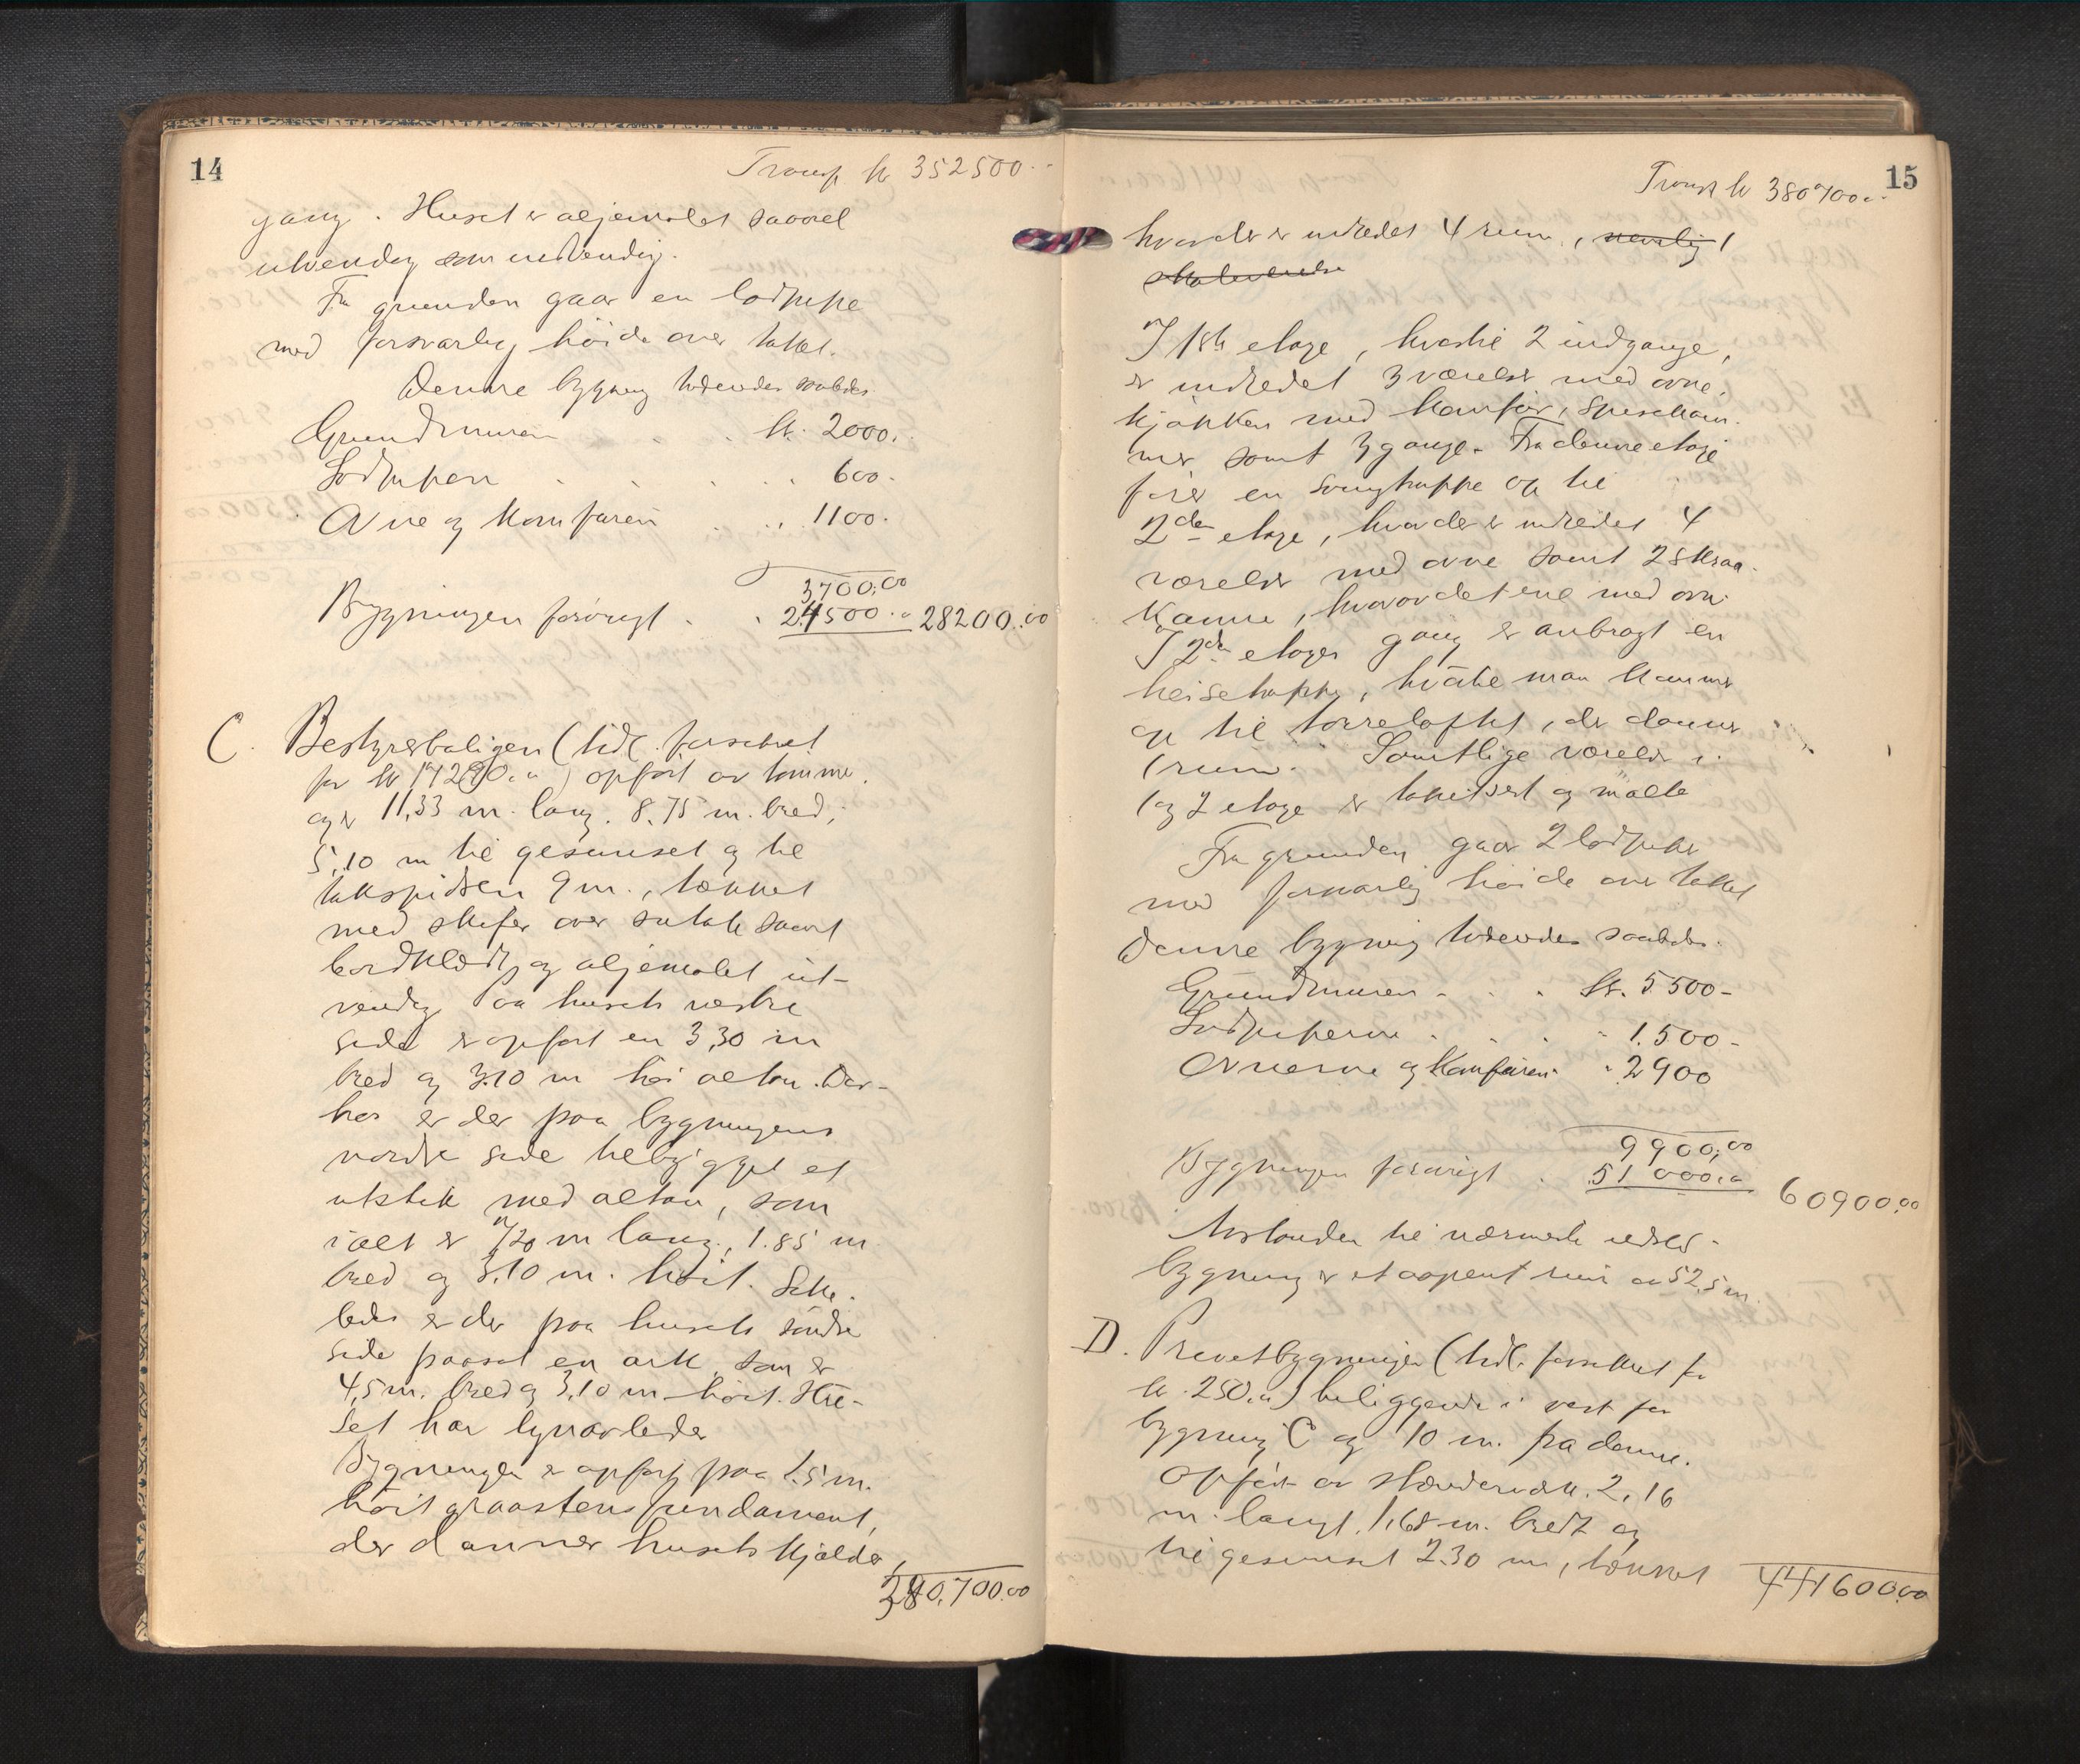 14
Transp kr 352500.-
gang. Huset er oljemalet saavel
utvendig som indvendig.
Fra grunden gaar en lodpipe
med forsvarlig höide over taket.
Denne bygning vurderedes saaledes
Grundmuren . . . kr. 2000.
Lodpipen . . . . . 600.
Ovne og Komfuren . . . 1100.
3700,00
Bygningen forövrigt . . 24500.00 28200.00
C. Bestyrerboligen (tidl. forsikret
for kr 17290.00) opfört av tömmer
og er 11,33 m. lang. 8.75 m. bred,
5,10 m til gesimset og til
takspidsen 9 m., tækket
med skifer over sutak samt
bordklædt og oljemalet ut-
vendig. Paa husets vestre
side er opfört en 3,30 m
bred og 3.10 m höi altan. Der-
hos er der paa bygningens
nordre side tilbygget et
utstik med altan, som
ialt er 7,20 m lang, 1.85 m
bred og 3,10 m. höit. Like-
ledes er der paa husets söndre
side paasat en ark som er
4,5 m. bred og 3,10 m höit. Hu-
set har lynavleder
Bygningen er opfört paa 2.5 m.
höit graastens fundament,
der danner husets kjelder,
380,700.00
15
Transp kr 380700..
hvor der er indredet 4 rum, nemlig 1
I 1ste etage, hvortil 2 indgange,
er indredet 3 værelser med ovne,
kjökken med komfur, spisekam-
mer samt 3 gange. Fra denne etage
förer en svingtrappe op til
2den etage, hvor der er indredet 4
værelser med ovne samt 2 skraa-
kamre, hvorav det ene med ovn.
I 2den etages gang er anbragt en
heisetrappe, hvorved man kommer
op til törreloftet, der danner
1 rum. Samtlige værelser i
1 og 2 etage er tapetsert og malte
Fra grunden gaar 2 lodpiper
med forsvarlig höide over taket
Denne bygning vurderedes saaledes.
Grundmuren . . . kr. 5500-
Lodpiperne . . . . 1.500-
Ovnerne og Komfuren . 2900
9900,00
Bygningen forövrigt . 51000.00 60900.00
Avstanden til nærmeste uthus-
bygning er et aapent rum av 52,5 m.
D. Privetbygningen (tidl. forsikret for
kr. 250.00) beliggende i vest for
bygning C og 10 m. fra denne.
Opfört av stænderverk. 2,16
m. langt, 1,68 m. bredt og
til gesimset 2.30 m, tækket
441600.00